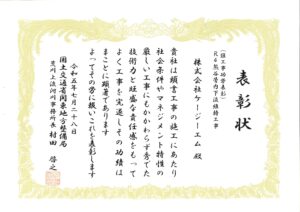 表彰状
(優良工事等表彰)
R4熊谷管内下流維持工事
株式会社ケージーエム 殿
貴社は頭書工事の施工にあたり
社会条件やマネジメント特性の
厳しい工事にもかかわらず秀でた
技術力と旺盛な責任感をもって
よく工事を完遂しその功績は
まことに顕著であります
よってその労に報いこれを表彰します
令和五年七月二十八日
国土交通省関東地方整備局
荒川上流河川事務所長 村田 啓之